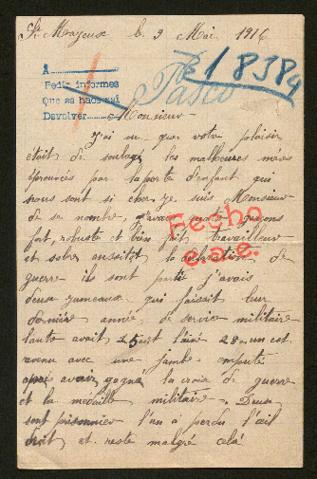 St Mayeux le 3 Mai 1916
A
Pedir informes
Que se hace aqui
Devolver
B 18384
Pasco
Monsieur
J'ai vu que votre plaisir
était de soulagé les malheures mères
éprouvés par la perte d'enfant qui
nous sont si cher, Je suis Monsieur
de ce nombre, j'avais garçons
fort, robuste et bien fait, travailleur
et sobre aussitot la déclaration de
guerre ils sont partie j'avais
deux jumeaux qui faisait leur
dernière année de service militaire
l'autre avait 25 et l'ainé 28 un est
revenu avec une jambe emporté
après avoir gagné la croix de guerre
et la médaille militaire. Deux
sont prisonnier l'un a perdu l'œil
droit et reste malgré celà
Fecho
c.a.e.